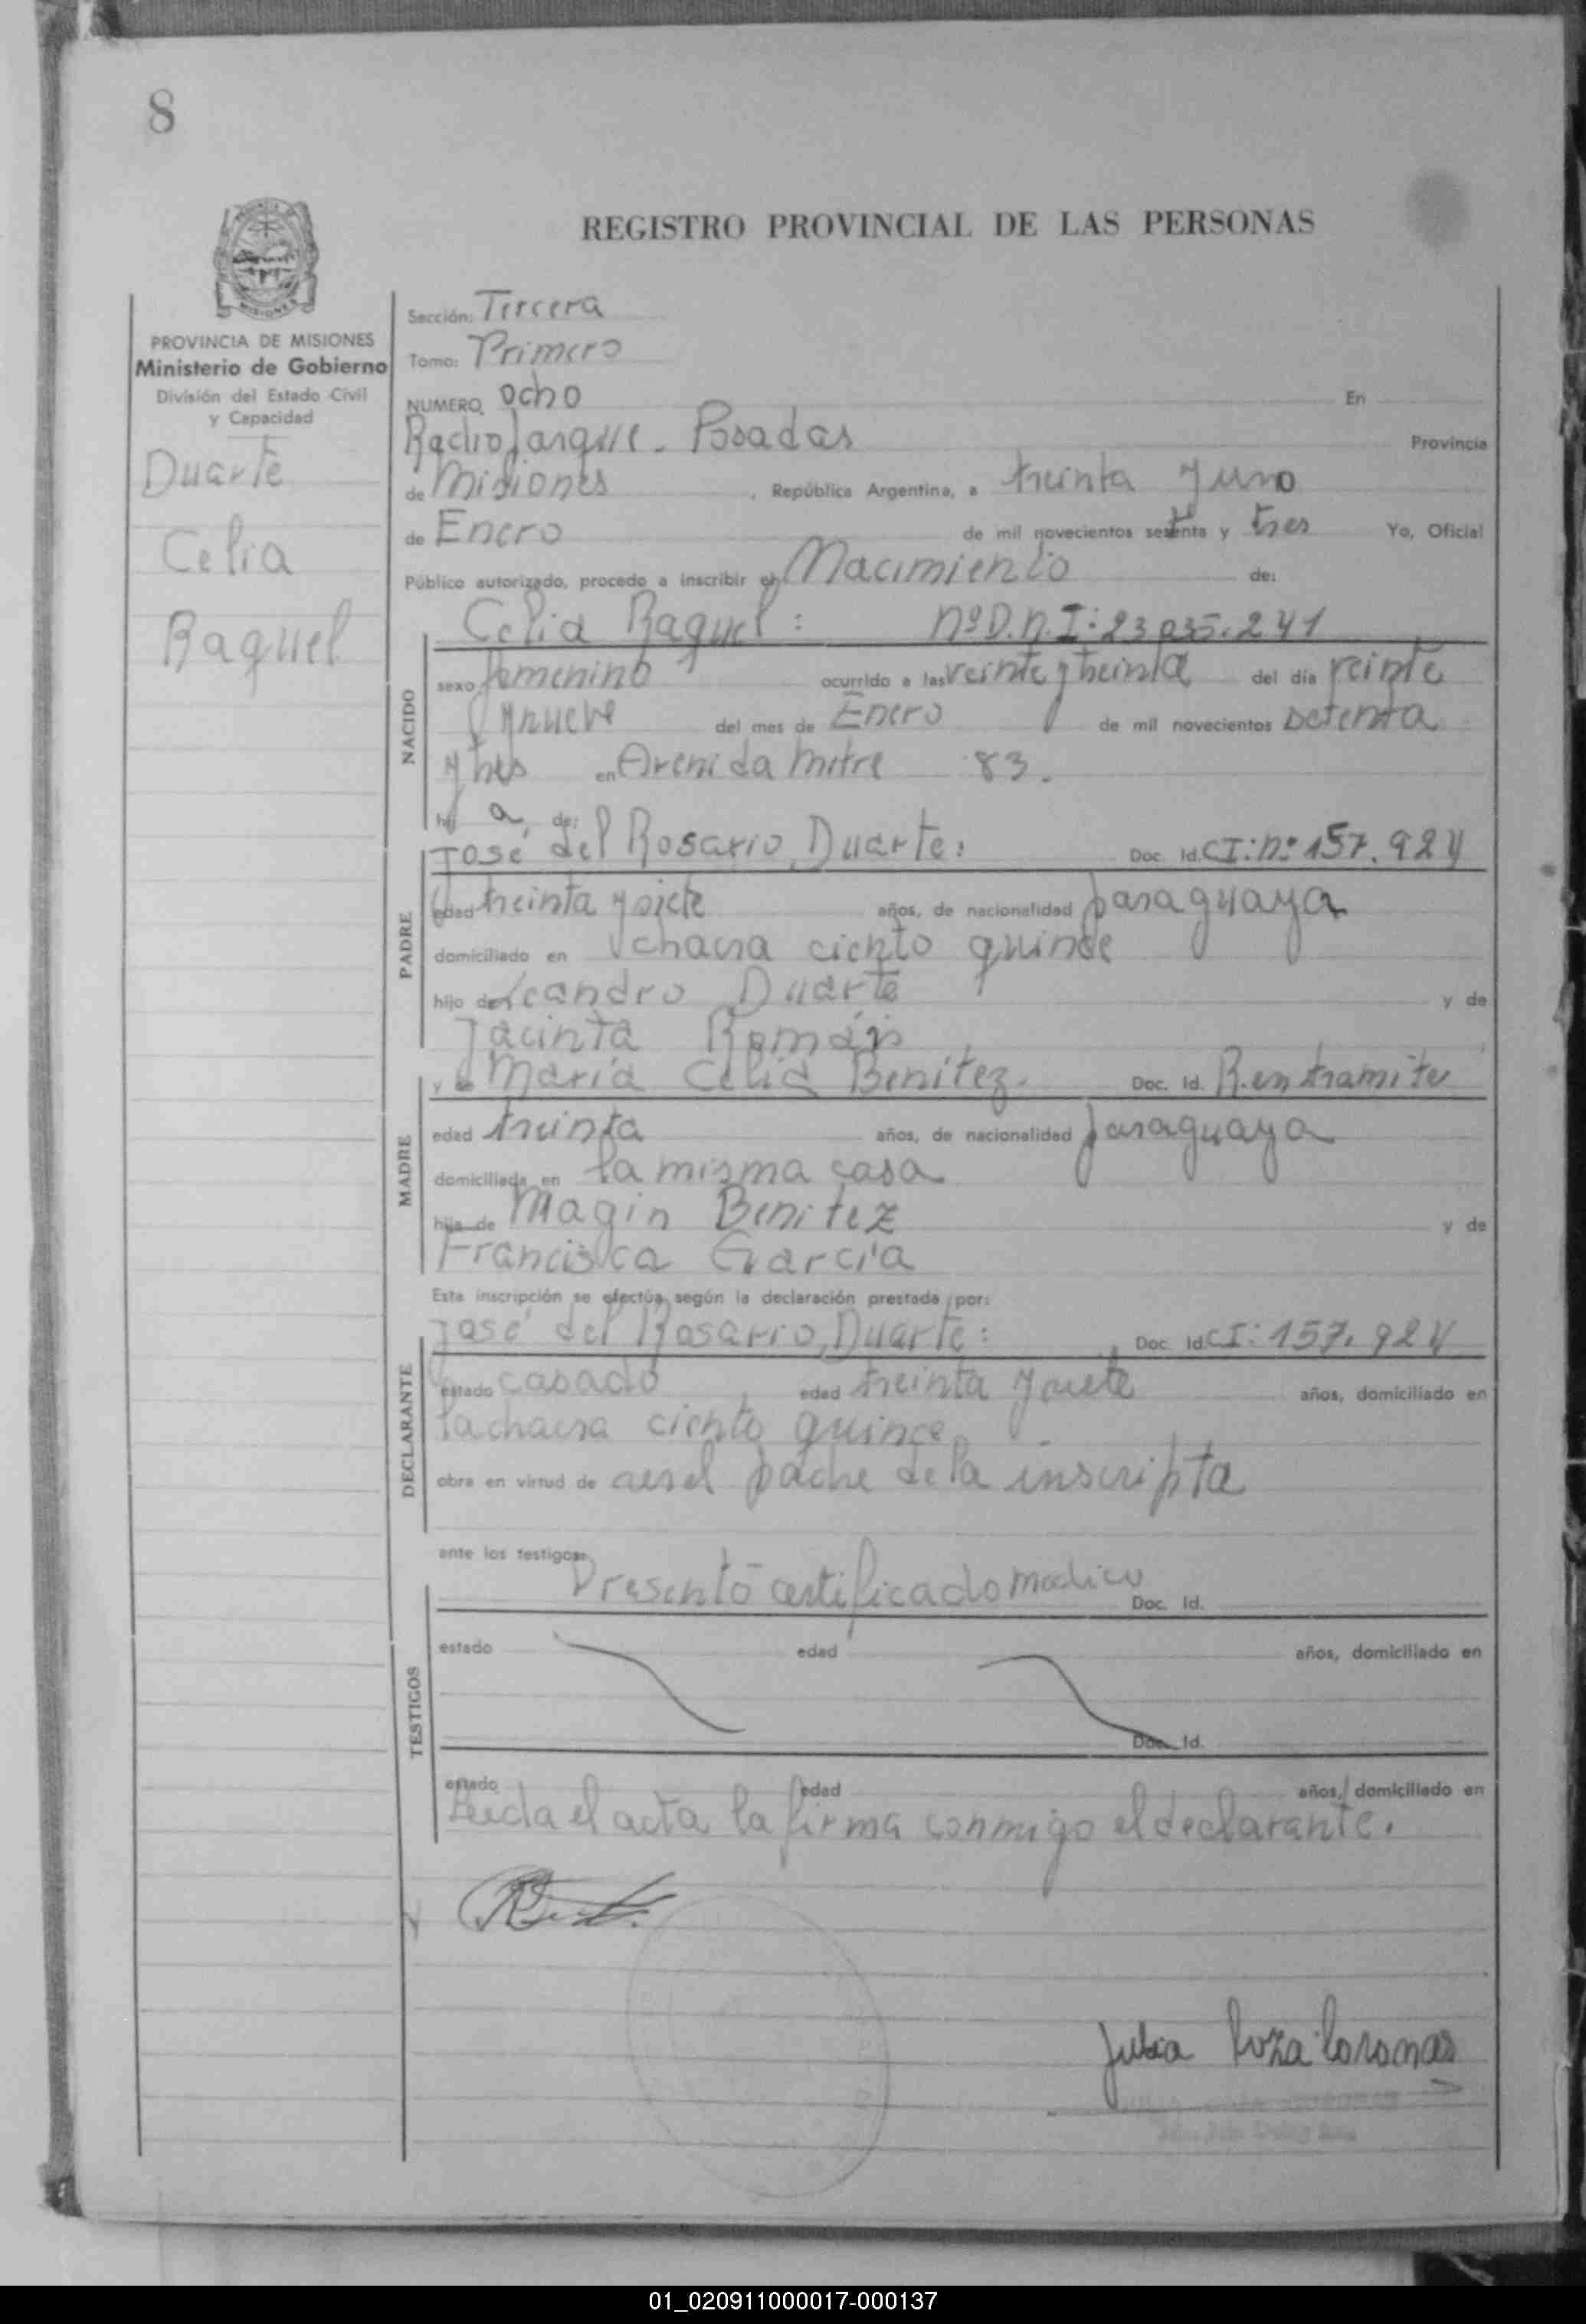 8
REGISTRO PROVINCIAL DE LAS PERSONAS
PROVINCIA DE MISIONES
Ministerio de Gobierno
División del Estado Civil
y Capacidad
Duarte
Celia
Raquel
Sección: Tercera
Tomo: Primero
NUMERO ocho En
Posadas Provincia
de Misiones , República Argentina, a treinta y uno
de Enero de mil novecientos setenta y tres Yo, Oficial
Público autorizado, procedo a inscribir el Nacimiento de:
Celia Raquel: Nº D.N.I: 23.035.241
NACIDO
sexo femenino ocurrido a las veinte y treinta del día veinte
y nueve del mes de Enero de mil novecientos setenta
y tres en Avenida Mitre 83.
hij a de:
José del Rosario Duarte: Doc. Id. CI: Nº 157.924
PADRE
edad treinta y siete años, de nacionalidad paraguaya
domiciliado en chacra ciento quince
hijo de Leandro Duarte y de
Jacinta Román
y de María Celia Benitez. Doc. Id. R. en tramite
MADRE
edad treinta años, de nacionalidad paraguaya
domiciliada en la misma casa
hija de Magin Benitez y de
Francisca García
Esta inscripción se efectúa según la declaración prestada por:
José del Rosario Duarte: Doc. Id. CI: 157.924
DECLARANTE
estado casado edad treinta y siete años, domiciliado en
la chacra ciento quince
obra en virtud de ser el padre de la inscripta
ante los testigos:
Presentó certificado medico Doc. Id.
TESTIGOS
estado edad años, domiciliado en
Doc. Id.
estado edad años, domiciliado en
Leida el acta la firma conmigo el declarante.
Julia Loza Coronas
01_020911000017-000137